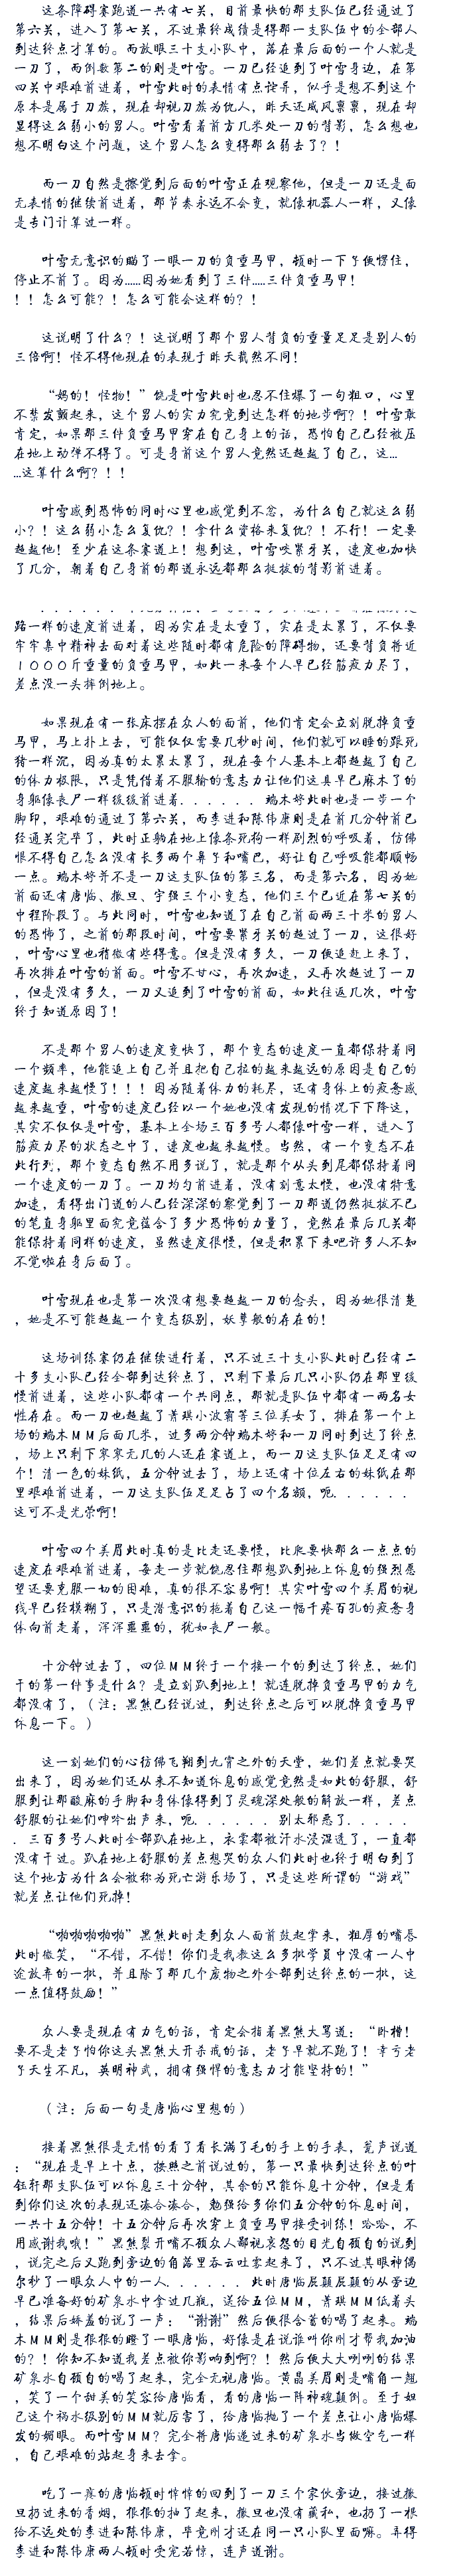 这条障碍赛跑道一共有七关，目前最快的那支队伍已经通过了
第六关，进入了第七关，不过最终成绩是得那一支队伍中的全部人
到达终点才算的。而放眼三十支小队中，落在最后面的一个人就是
一刀了，而倒数第二的则是叶雪。一刀已经追到了叶雪身边，在第
四关中艰难前进着，叶雪此时的表情有点诧异，似乎是想不到这个
原本是属于刀族，现在却视刀族为仇人，昨天还威风禀禀，现在却
显得这么弱小的男人。叶雪看着前方几米处一刀的背影，怎么想也
想不明白这个问题，这个男人怎么变得那么弱去了？！
而一刀自然是擦觉到后面的叶雪正在观察他，但是一刀还是面
无表情的继续前进着，那节奏永远不会变，就像机器人一样，又像
是专门计算过一样。
叶雪无意识的瞄了一眼一刀的负重马甲，顿时一下子便愣住，
停止不前了。因为……因为她看到了三件……三件负重马甲！
！！怎么可能？！怎么可能会这样的？！
这说明了什么？！这说明了那个男人背负的重量足足是别人的
三倍啊！怪不得他现在的表现于昨天截然不同！
“妈的！怪物！”饶是叶雪此时也忍不住爆了一句粗口，心里
不禁发颤起来，这个男人的实力究竟到达怎样的地步啊？！叶雪敢
肯定，如果那三件负重马甲穿在自己身上的话，恐怕自己已经被压
在地上动弹不得了。可是身前这个男人竟然还超越了自己，这…
…这算什么啊？！！
叶雪感到恐怖的同时心里也感觉到不忿，为什么自己就这么弱
小？！这么弱小怎么复仇？！拿什么资格来复仇？！不行！一定要
超越他！至少在这条赛道上！想到这，叶雪咬紧牙关，速度也加快
了几分，朝着自己身前的那道永远都那么挺拔的背影前进着。
路一样的速度前进着，因为实在是太重了，实在是太累了，不仅要
牢牢集中精神去面对着这些随时都有危险的障碍物，还要背负将近
１０００斤重量的负重马甲，如此一来每个人早已经筋疲力尽了，
差点没一头摔倒地上。
如果现在有一张床摆在众人的面前，他们肯定会立刻脱掉负重
马甲，马上扑上去，可能仅仅需要几秒时间，他们就可以睡的跟死
猪一样沉，因为真的太累太累了，现在每个人基本上都超越了自己
的体力极限，只是凭借着不服输的意志力让他们这具早已麻木了的
身躯像丧尸一样缓缓前进着．．．．．．端木婷此时也是一步一个
脚印，艰难的通过了第六关，而李进和陈伟康则是在前几分钟前已
经通关完毕了，此时正躺在地上像条死狗一样剧烈的呼吸着，仿佛
恨不得自己怎么没有长多两个鼻子和嘴巴，好让自己呼吸能都顺畅
一点。端木婷并不是一刀这支队伍的第三名，而是第六名，因为她
前面还有唐临、撒旦、宇强三个小变态，他们三个已近在第七关的
中程阶段了。与此同时，叶雪也知道了在自己前面两三十米的男人
的恐怖了，之前的那段时间，叶雪要紧牙关的超过了一刀，这很好
，叶雪心里也稍微有些得意。但是没有多久，一刀便追赴上来了，
再次排在叶雪的前面。叶雪不甘心，再次加速，又再次超过了一刀
，但是没有多久，一刀又追到了叶雪的前面，如此往返几次，叶雪
终于知道原因了！
不是那个男人的速度变快了，那个变态的速度一直都保持着同
一个频率，他能追上自己并且把自己拉的越来越远的原因是自己的
速度越来越慢了！！！因为随着体力的耗尽，还有身体上的疲惫感
越来越重，叶雪的速度已经以一个她也没有发现的情况下下降这，
其实不仅仅是叶雪，基本上全场三百多号人都像叶雪一样，进入了
筋疲力尽的状态之中了，速度也越来越慢。当然，有一个变态不在
此行列，那个变态自然不用多说了，就是那个从头到尾都保持着同
一个速度的一刀了。一刀均匀前进着，没有刻意太慢，也没有特意
加速，看得出门道的人已经深深的察觉到了一刀那道仍然挺拔不已
的笔直身躯里面究竟蕴含了多少恐怖的力量了，竟然在最后几关都
能保持着同样的速度，虽然速度很慢，但是积累下来吧许多人不知
不觉啦在身后面了。
叶雪现在也是第一次没有想要超越一刀的念头，因为她很清楚
，她是不可能超越一个变态级别，妖孽般的存在的！
这场训练赛仍在继续进行着，只不过三十支小队此时已经有二
十多支小队已经全部到达终点了，只剩下最后几只小队仍在那里缓
慢前进着，这些小队都有一个共同点，那就是队伍中都有一两名女
性存在。而一刀也超越了菁琪小波霸等三位美女了，排在第一个上
场的端木ＭＭ后面几米，过多两分钟端木婷和一刀同时到达了终点
，场上只剩下寥寥无几的人还在赛道上，而一刀这支队伍足足有四
个！清一色的妹纸，五分钟过去了，场上还有十位左右的妹纸在那
里艰难前进着，一刀这支队伍足足占了四个名额，呃．．．．．．
这可不是光荣啊！
叶雪四个美眉此时真的是比走还要慢，比爬要快那么一点点的
速度在艰难前进着，每走一步就饶忍住那想趴到地上休息的强烈愿
望还要克服一切的困难，真的很不容易啊！其实叶雪四个美眉的视
线早已经模糊了，只是潜意识的拖着自己这一幅千疮百孔的疲惫身
体向前走着，浑浑噩噩的，犹如丧尸一般。
十分钟过去了，四位ＭＭ终于一个接一个的到达了终点，她们
干的第一件事是什么？是立刻趴到地上！就连脱掉负重马甲的力气
都没有了，（注：黑熊已经说过，到达终点之后可以脱掉负重马甲
休息一下。）
这一刻她们的心彷佛飞翔到九霄之外的天堂，她们差点就要哭
出来了，因为她们还从来不知道休息的感觉竟然是如此的舒服，舒
服到让那酸麻的手脚和身体像得到了灵魂深处般的解放一样，差点
舒服的让她们呻吟出声来，呃．．．．．．别太邪恶了．．．．．
．三百多号人此时全部趴在地上，衣裳都被汗水浸湿透了，一直都
没有干过。趴在地上舒服的差点想哭的众人们此时也终于明白到了
这个地方为什么会被称为死亡游乐场了，只是这些所谓的“游戏”
就差点让他们死掉！
“啪啪啪啪啪”黑熊此时走到众人面前鼓起掌来，粗厚的嘴唇
此时微笑，“不错，不错！你们是我教这么多批学员中没有一人中
途放弃的一批，并且除了那几个废物之外全部到达终点的一批，这
一点值得鼓励！”
众人要是现在有力气的话，肯定会指着黑熊大骂道：“卧槽！
要不是老子怕你这头黑熊大开杀戒的话，老子早就不跑了！幸亏老
子天生不凡，英明神武，拥有强悍的意志力才能坚持的！”
（注：后面一句是唐临心里想的）
接着黑熊很是无情的看了看长满了毛的手上的手表，瓮声说道
：“现在是早上十点，按照之前说过的，第一只最快到达终点的叶
钰轩那支队伍可以休息三十分钟，其余的只能休息十分钟，但是看
到你们这次的表现还凑合凑合，勉强给多你们五分钟的休息时间，
一共十五分钟！十五分钟后再次穿上负重马甲接受训练！哈哈，不
用感谢我哦！”黑熊裂开嘴不顾众人鄙视哀怨的目光自顾自的说到
，说完之后又跑到旁边的角落里吞云吐雾起来了，只不过其眼神偶
尔秒了一眼众人中的一人．．．．．．此时唐临屁颠屁颠的从旁边
早已准备好的矿泉水中拿过几瓶，送给五位ＭＭ，菁琪ＭＭ低着头
，结果后娇羞的说了一声：“谢谢”然后便很含蓄的喝了起来。端
木ＭＭ则是狠狠的瞪了一眼唐临，好像是在说谁叫你刚才帮我加油
的？！你知不知道我差点被你影响到啊？！然后便大大咧咧的结果
矿泉水自顾自的喝了起来，完全无视唐临。黄晶美眉则是嘴角一翘
，笑了一个甜美的笑容给唐临看，看的唐临一阵神魂颠倒。至于妲
己这个祸水级别的ＭＭ就厉害了，给唐临抛了一个差点让小唐临爆
发的媚眼。而叶雪ＭＭ？完全将唐临递过来的矿泉水当做空气一样
，自己艰难的站起身来去拿。
吃了一瘪的唐临顿时悻悻的回到了一刀三个家伙旁边，接过撒
旦扔过来的香烟，狠狠的抽了起来，撒旦也没有藏私，也扔了一根
给不远处的李进和陈伟康，毕竟刚才还在同一只小队里面嘛。弄得
李进和陈伟康两人顿时受宠若惊，连声道谢。